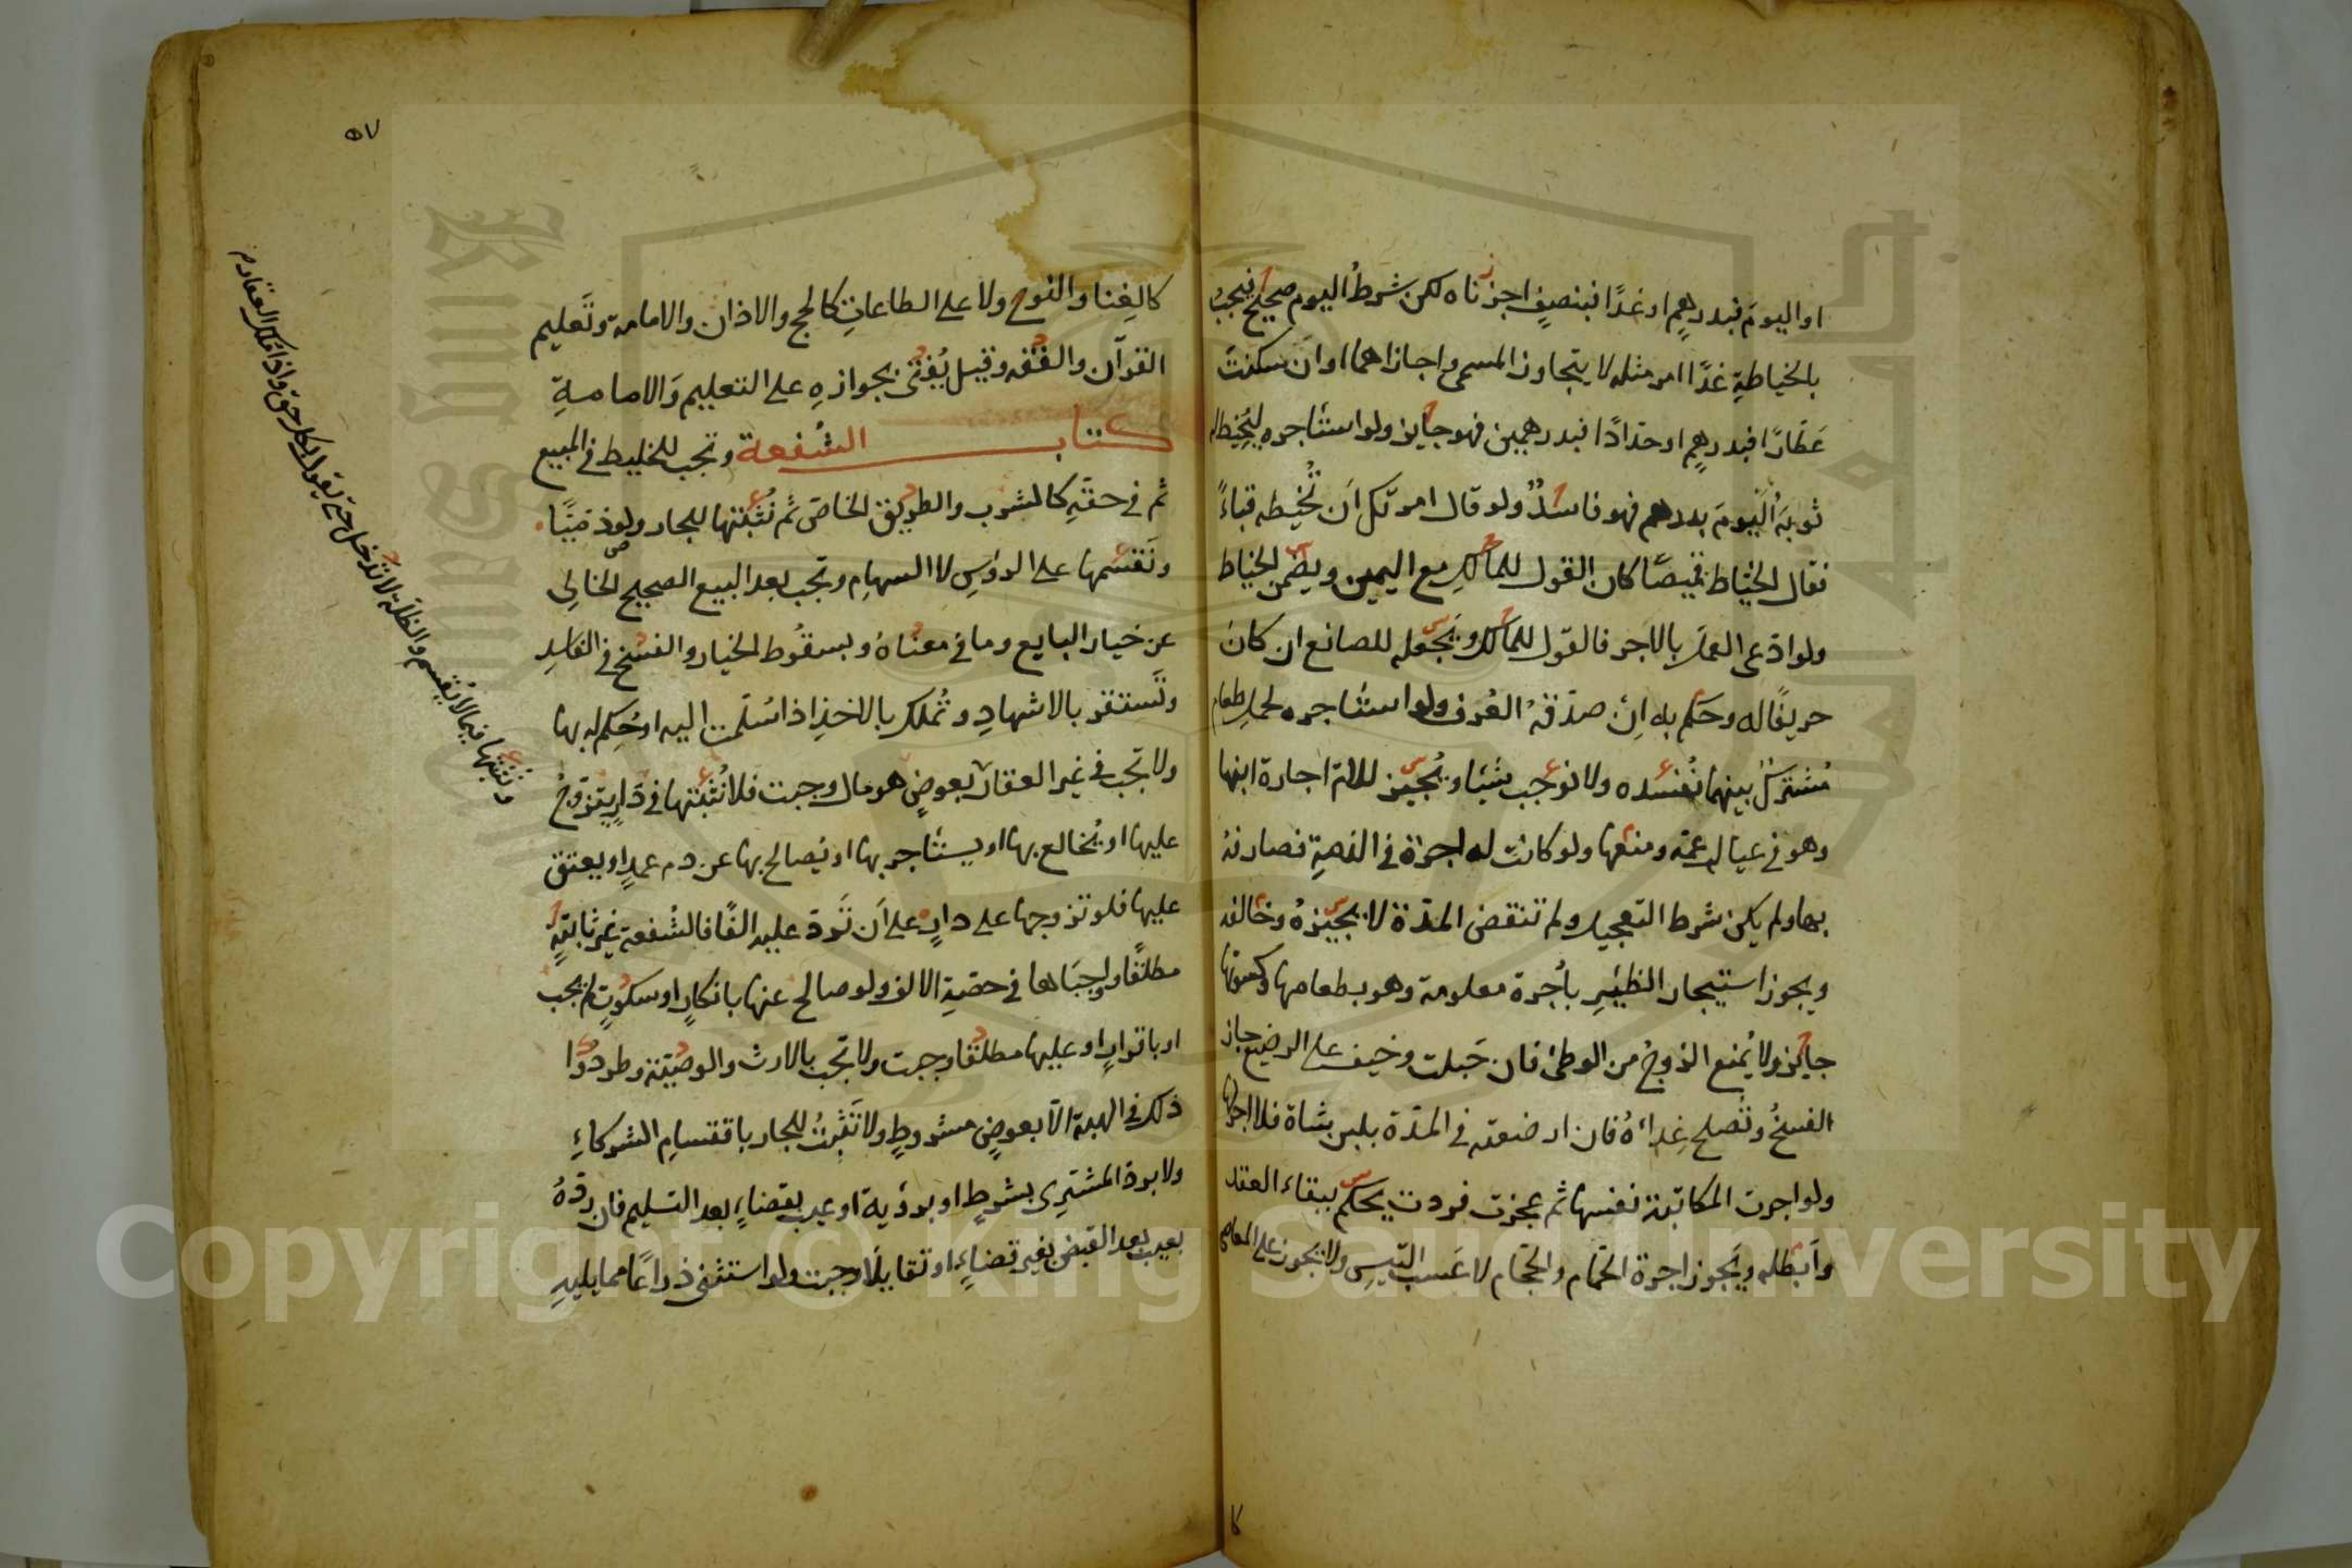 او اليومَ فبدرهمٍ او غدًا فبنصفٍ اجزناه لكن شرطُ اليوم صحيح فيجبُ
بالخياطةِ غدًا اجر مثله لا يتجاوز المسمى واجازاهما او ان سكنتَ
عَطّارًا فبدرهمٍ او حدّادًا فبدرهمين فهو جايز ولو استئاجره ليخيط له
ثوبَه اليومَ بدرهم فهو فاسدٌ ولو قال امرتك ان تخيطه قباءً
فقال الخيّاط قميصًا كان القول للمالكِ مع اليمين ويضمن الخياط
ولو ادّعى العمل بالاجر فالقول للمالك ويَجعله للصانع ان كان
حريفًا له وحكم به اِن صدّقهُ العُرف ولو استئاجره لحمل طعام
مُشتركٍ بينهما نُفسده ولا نوجب شيئا ويُجيز للامّ اجارة ابنها
وهو في عيال عمّه ومنعها ولو كانت له اجرة في الذمةِ فصارفهُ
بها ولم يكن شرط التعجيل ولم تنقض المدّة لا يجيزهُ وخالفه
ويجوز استيجار الظئرِ بأجرة معلومة وهو بطعامها وكسوتها
جايز ولا يُمنع الزوجُ من الوطئ فان حَبلت وخيف على الرضيع جاز
الفسخُ وتُصلح غِداءهُ فان ارضعته في المدّة بلبن شاة فلا اجر لها
ولو اجرت المكاتبة نفسها ثم عجزت فردت يحكم ببقاء العقد
وأبطله ويَجوز اجرة الحمّام والحجّام لا عَسب التّيسِ ولا يجوز على المعاصي
كا
٥٧
كالغِنا والنوح ولا على الطاعاتِ كالحج والاذان والامامة وتَعليم
القرآن والفقه وقيل يُفتى بجوازهِ على التعليم وَالامامةِ
كتاب الشُفعة وتجب للخليط في المبيع
ثم في حقّهِ كالشرب والطريق الخاصّ ثم نُثبتها للجار ولو ذميّا
ونَقسمها على الرؤسِ لا السهامِ وتجب بعد البيع الصحيح الخالي
عن خيار البايع وما في معناهُ وبسقُوط الخيار والفسخ في الفاسدِ
وتَستقر بالاشهادِ وتُملك بالاخذِ اذا سُلّمت اليه او حُكِم له بها
ولا تجب في غير العقار بعوضٍ هو مال وجبت فلا نُثبتها في دارٍ يتزوجُ
عليها او يُخالع بها او يستئاجر بها او يُصالح بها عن دم عمدٍ او يعتق
عليها فلو تزوجها على دارٍ على اَن تَردّ عليه الفًا فالشُفعة غير ثابتةٍ
مطلقًا واوجبَاها في حصّةِ الالف ولو صالح عنها بانكارٍ او سكوتٍ لم يجب
او باقرارٍ او عليها مطلقًا وجبت ولا تجب بالارث والوصيّة وطردوا
ذلك في الهبة الّا بعوضٍ مشروطٍ ولا تَثبتُ للجار باقتسامِ الشركاءِ
ولا بردّ المشترِى بشرطٍ او برؤية او عيبٍ بقضاءٍ بعد التسليم فان ردّهُ
بعيب بعد القبض بغير قضاءٍ او تقايلَا وجبت ولو استثنى ذراعًا مما يليهِ
ونثبتها فيما لا يقسم والظلّة لا تدخل حتى يقول بكل حق واذا ملك العقار م